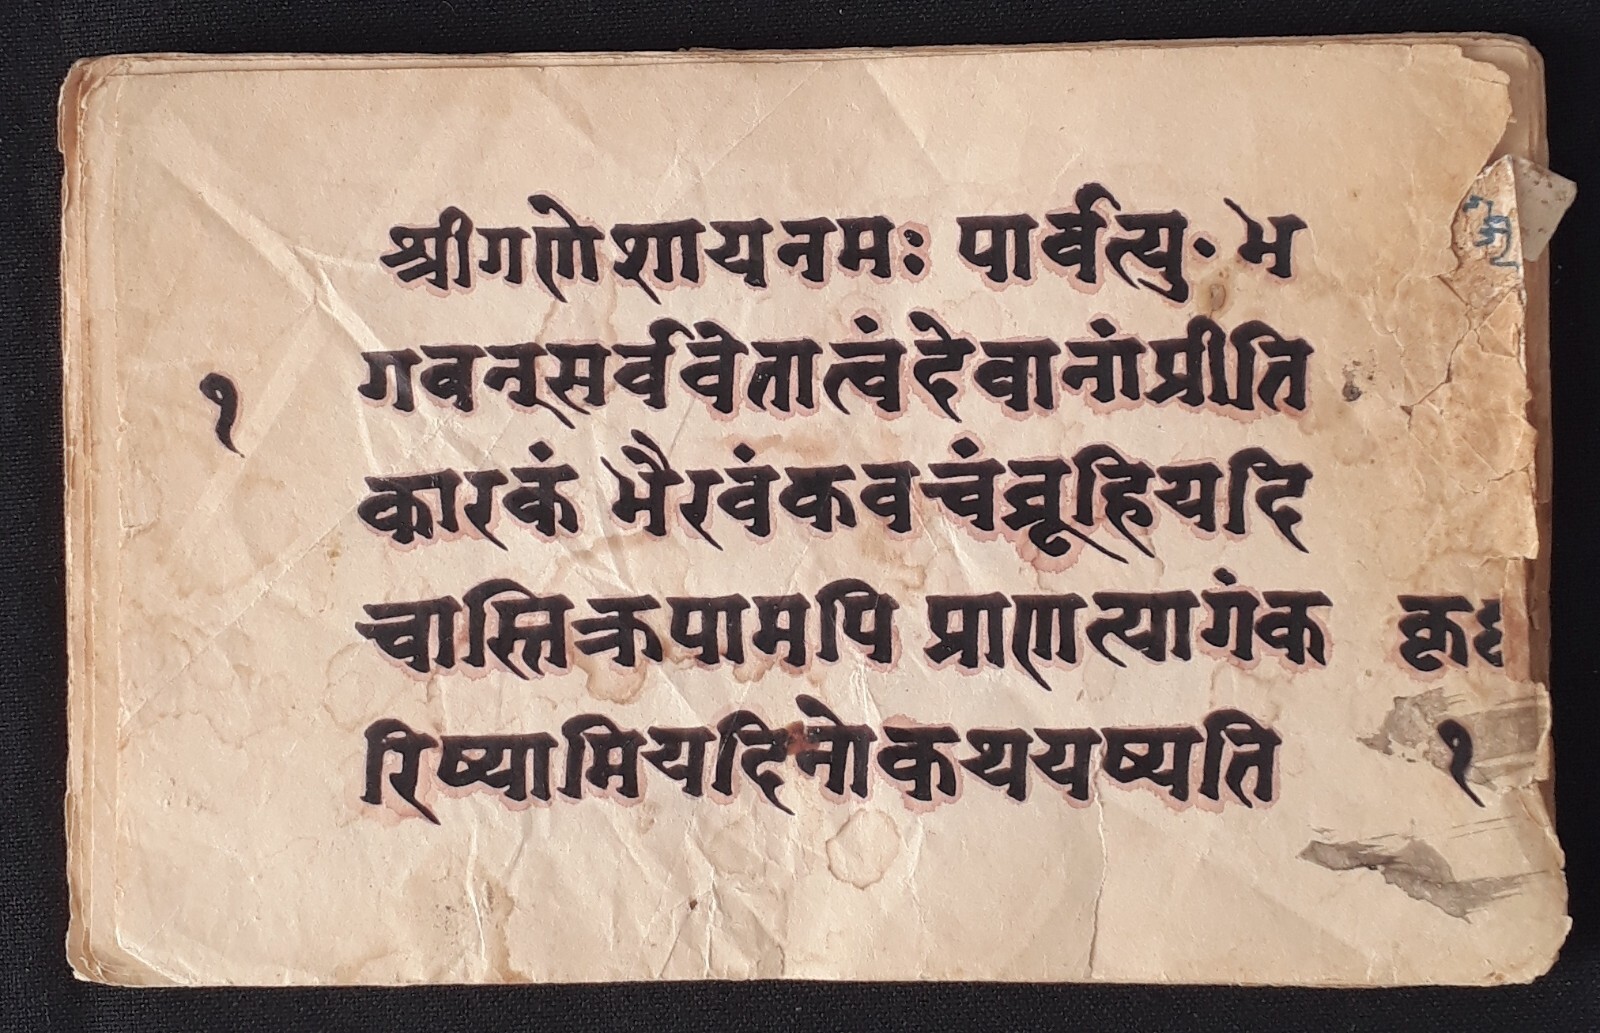 श्रीगणेशायनमः पार्वत्यु॰ भ
गवन्सर्ववेतात्वंदेवानांप्रीति
१
कारकं भैरवंकवचंब्रूहियदि
चास्तिक्रपामपि प्राणत्यागंक
रिष्यामियदिनोकथयष्यति
१